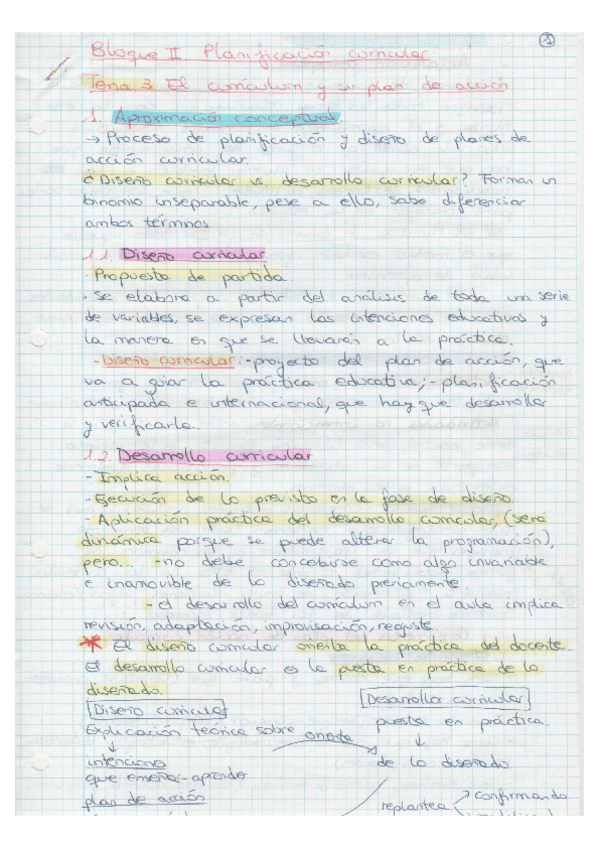 1
Bloque II. Planificación curricular
Tema 3. El currículum y su plan de acción
1. Aproximación conceptual.
→ Proceso de planificación y diseño de planes de
acción curricular.
¿Diseño curricular vs. desarrollo curricular? Forman un
binomio inseparable, pese a ello, sabe diferenciar
ambos términos
1.1. Diseño curricular
· Propuesta de partida
· Se elabora a partir del análisis de toda una serie
de variables, se expresan las intenciones educativas y
la manera en que se llevarán a la práctica.
- Diseño curricular: - proyecto del plan de acción, que
va a guiar la práctica educativa; - planificación
anticipada e internacional, que hay que desarrollar
y verificarla.
1.2. Desarrollo curricular
- Implica acción.
- Ejecución de lo previsto en la fase de diseño.
- Aplicación práctica del desarrollo curricular, (será
dinámica porque se puede alterar la programación),
pero... - no debe concebirse como algo invariable
e inamovible de lo diseñado previamente.
- el desarrollo del currículum en el aula implica
revisión, adaptación, improvisación, reajuste
* El diseño curricular orienta la práctica del docente.
El desarrollo curricular es la puesta en práctica de lo
diseñado.
Diseño curricular
Desarrollo curricular
Explicación teórica sobre orienta
puesta en práctica.
↓
↓
intenciono
de lo diseñado
que enseñar-aprender
plan de acción
replantea
confirmando